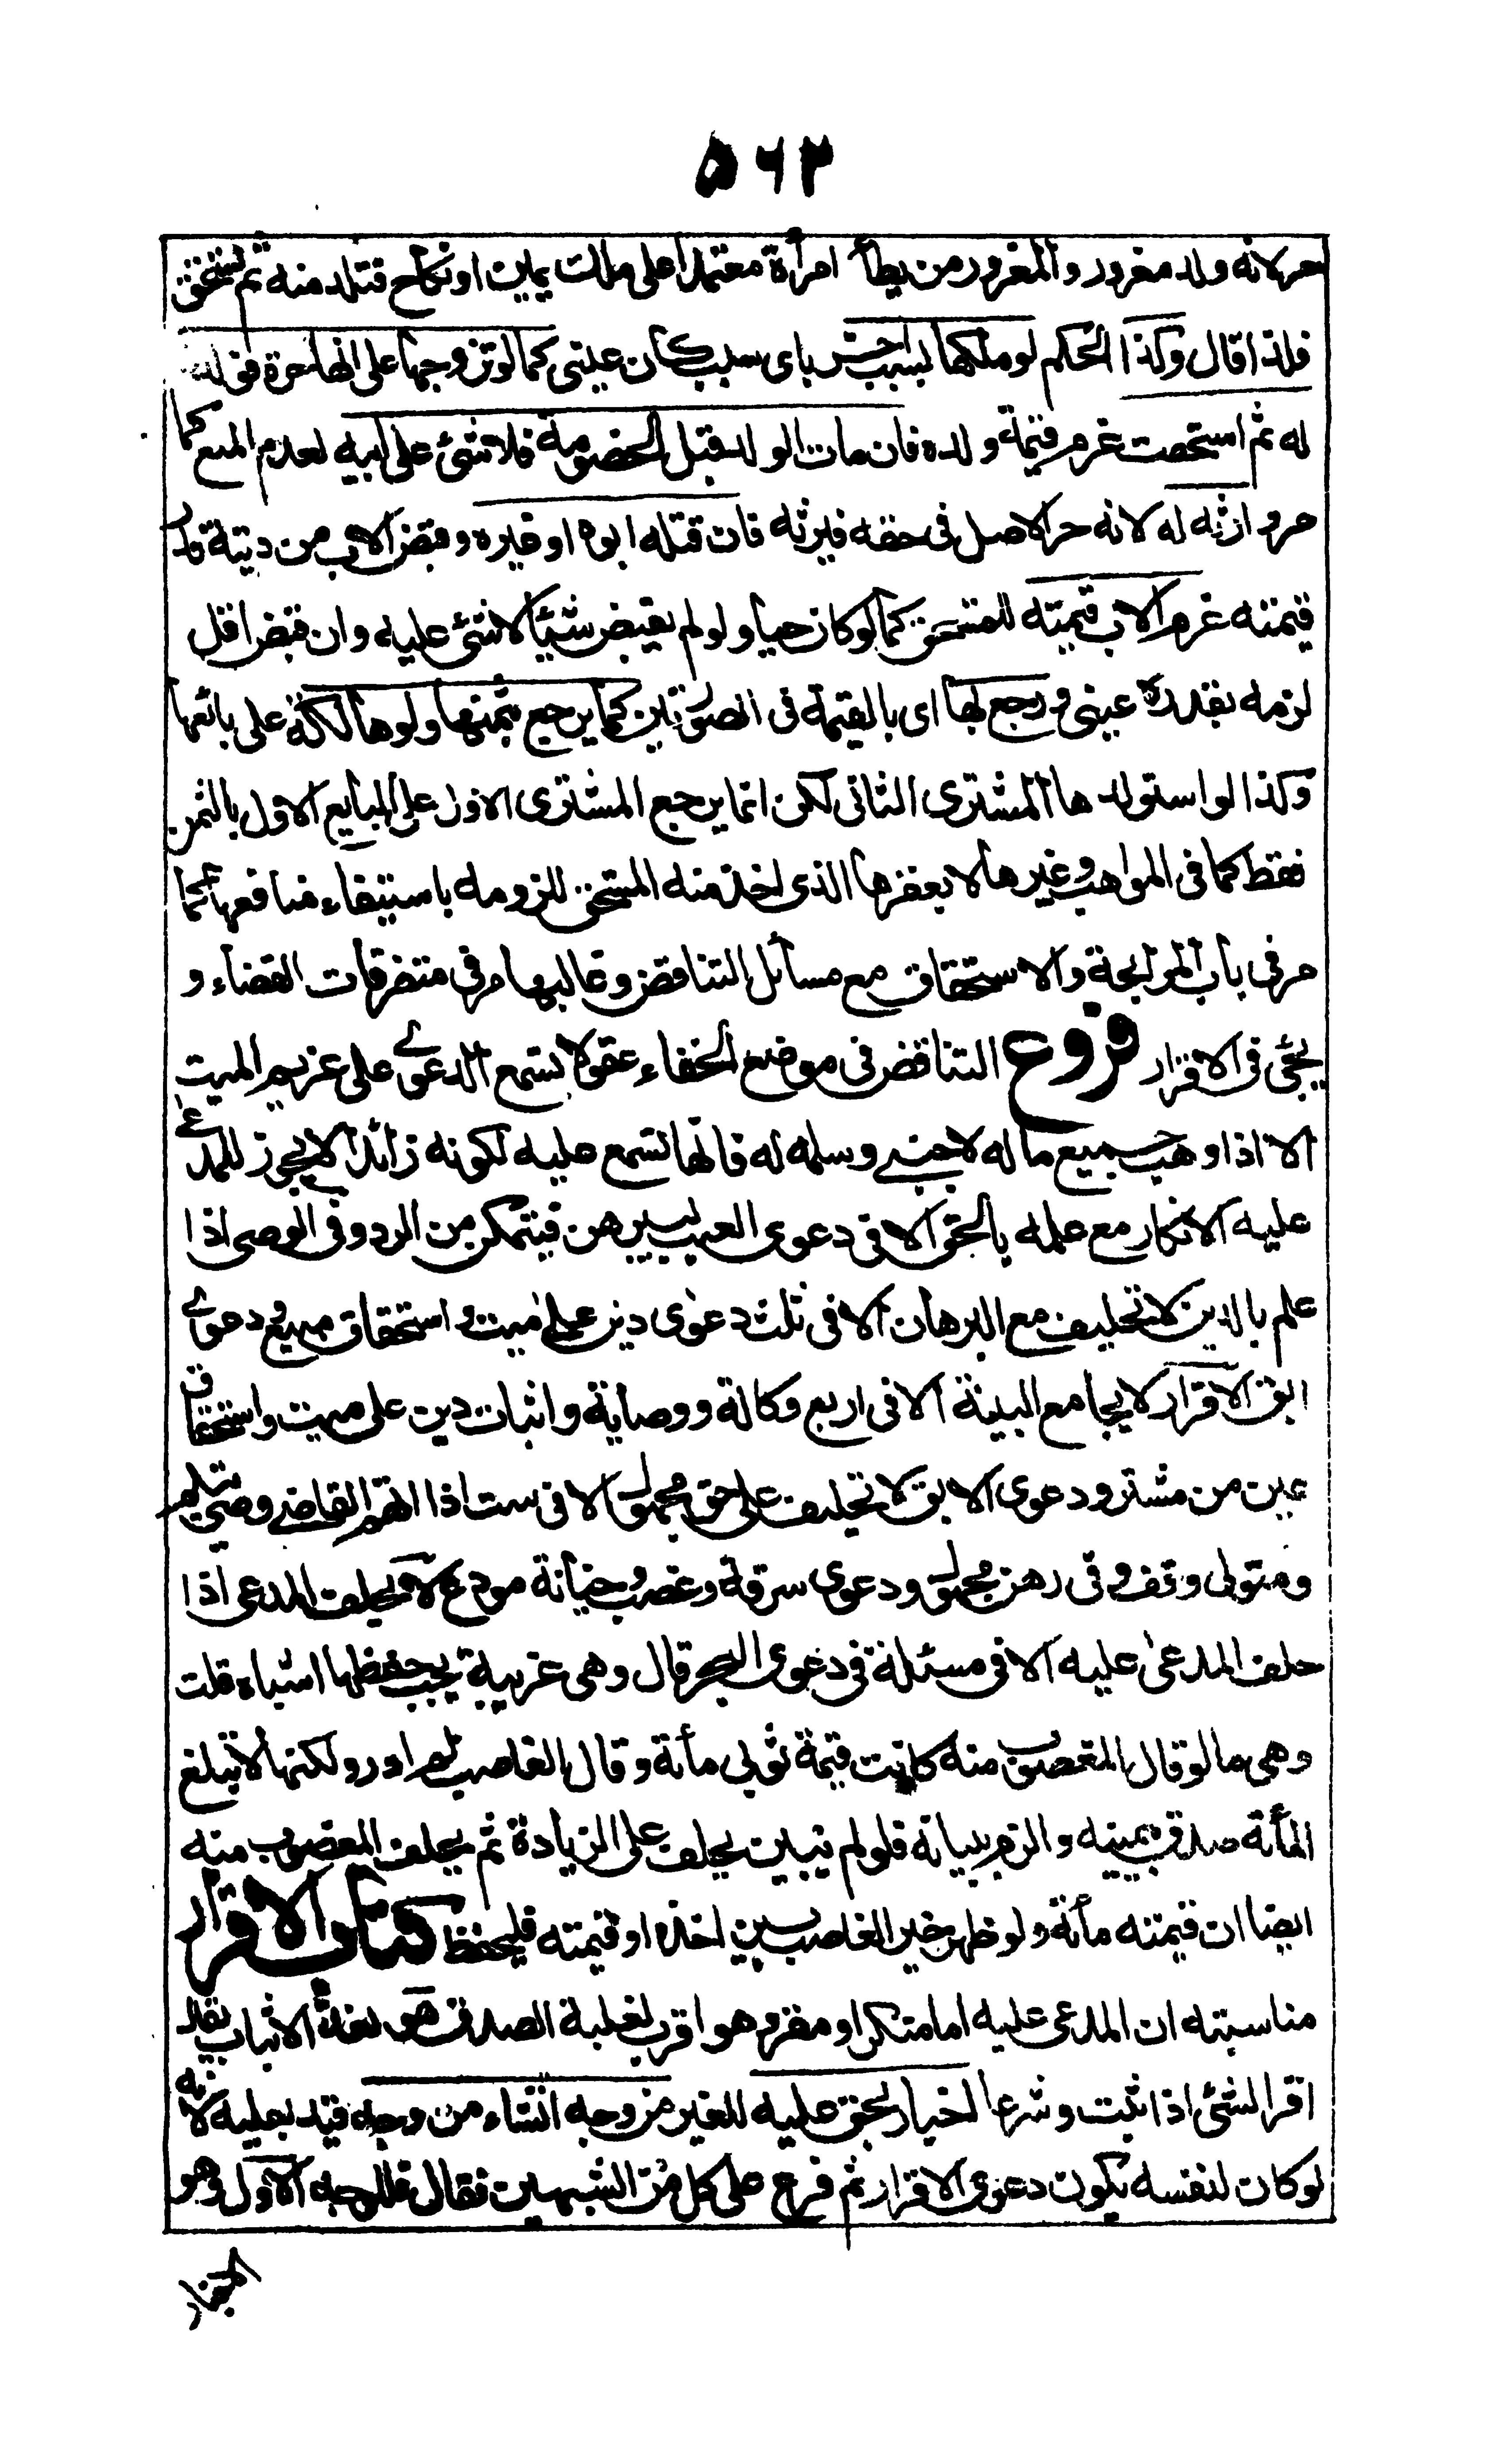 ٥٦٣
حر لانه ولد مغرور والمغرور من يطأ امرأة معتمدا على ملك يمين او نكاح فتلد منه ثم تستحق
فلذا قال وكذا الحكم لو ملكها بسبب اخر باى سبب كان عينى كما لو تزوجها على انها حرة فولدت
له ثم استحقت غرم قيمة ولده فان مات الولد قبل الخصومة فلا شئ على ابيه لعدم المنع كما
مر وارثه له لانه حر الاصل فى حقه فيرثه فان قتله ابوه او غيره وقبض الاب من ديته قدر
قيمته غرم الاب قيمته للمستحق كما لو كان حيا ولو لم يقبض شيئا لا شئ عليه وان قبض اقل
لزمه بقدره عينى ورجع بها اى بالقيمة فى الصورتين كما يرجع بثمنها ولو هالكة على بائعها
وكذا لو استولدها المشترى الثانى لكن انما يرجع المشترى الاول على البايع الاول بالثمن
فقط كما فى المواهب وغيرها لا بعقرها الذى اخذ منه المستحق للزومه باستيفاء منافعها كما
مر فى باب المرابحة والاستحقاق مع مسائل التناقض وغالبها مر فى متفرقات القضاء و
يجئ فى الاقرار فروع التناقض فى موضع الخفاء عفو لا تسمع الدعوى على غريم الميت
الا اذا وهب جميع ماله لاجنبى وسلمه له فانها تسمع عليه لكونه زائدا لا يجوز للمدعى
عليه الانكار مع علمه بالحق الا فى دعوى العيب ليبرهن فيتمكن من الرد وفى الوصى اذا
علم بالدين لا تحليف مع البرهان الا فى ثلث دعوى دين على ميت واستحقاق مبيع ودعوى
ابق الاقرار لا يجامع البينة الا فى اربع وكالة ووصاية واثبات دين على ميت واستحقاق
عين من مشتر ودعوى الابق لا تحليف على حق مجهول الا فى ست اذا اتهم القاضى وصى يتيم
ومتولى وقف وفى رهن مجهول ودعوى سرقة وغصب وخيانة مودع لا يحلف المدعى اذا
حلف المدعى عليه الا فى مسئلة فى دعوى البحر قال وهى غريبة يجب حفظها اشباه قلت
وهى ما لو قال المغصوب منه كانت قيمة ثوبى مأئة وقال الغاصب لم ادر ولكنها لا تبلغ
المأئة صدق بيمينه والزم ببيانه فلو لم يبين يحلف على الزيادة ثم يحلف المغصوب منه
ايضا ان قيمته مأئة ولو ظهر خير الغاصب بين اخذه او قيمته فليحفظ كتاب الاقرار
مناسبته ان المدعى عليه اما منكر او مقر وهو اقرب لغلبة الصدق هو لغة الاثبات يقال
اقر الشئ اذا ثبت وشرعا اخبار بحق عليه للغير من وجه انشاء من وجه قيد بعليه لانه
لو كان لنفسه يكون دعوى لا اقرار ثم فرع على كل من الشبهين فقال فللوجه الاول وهو